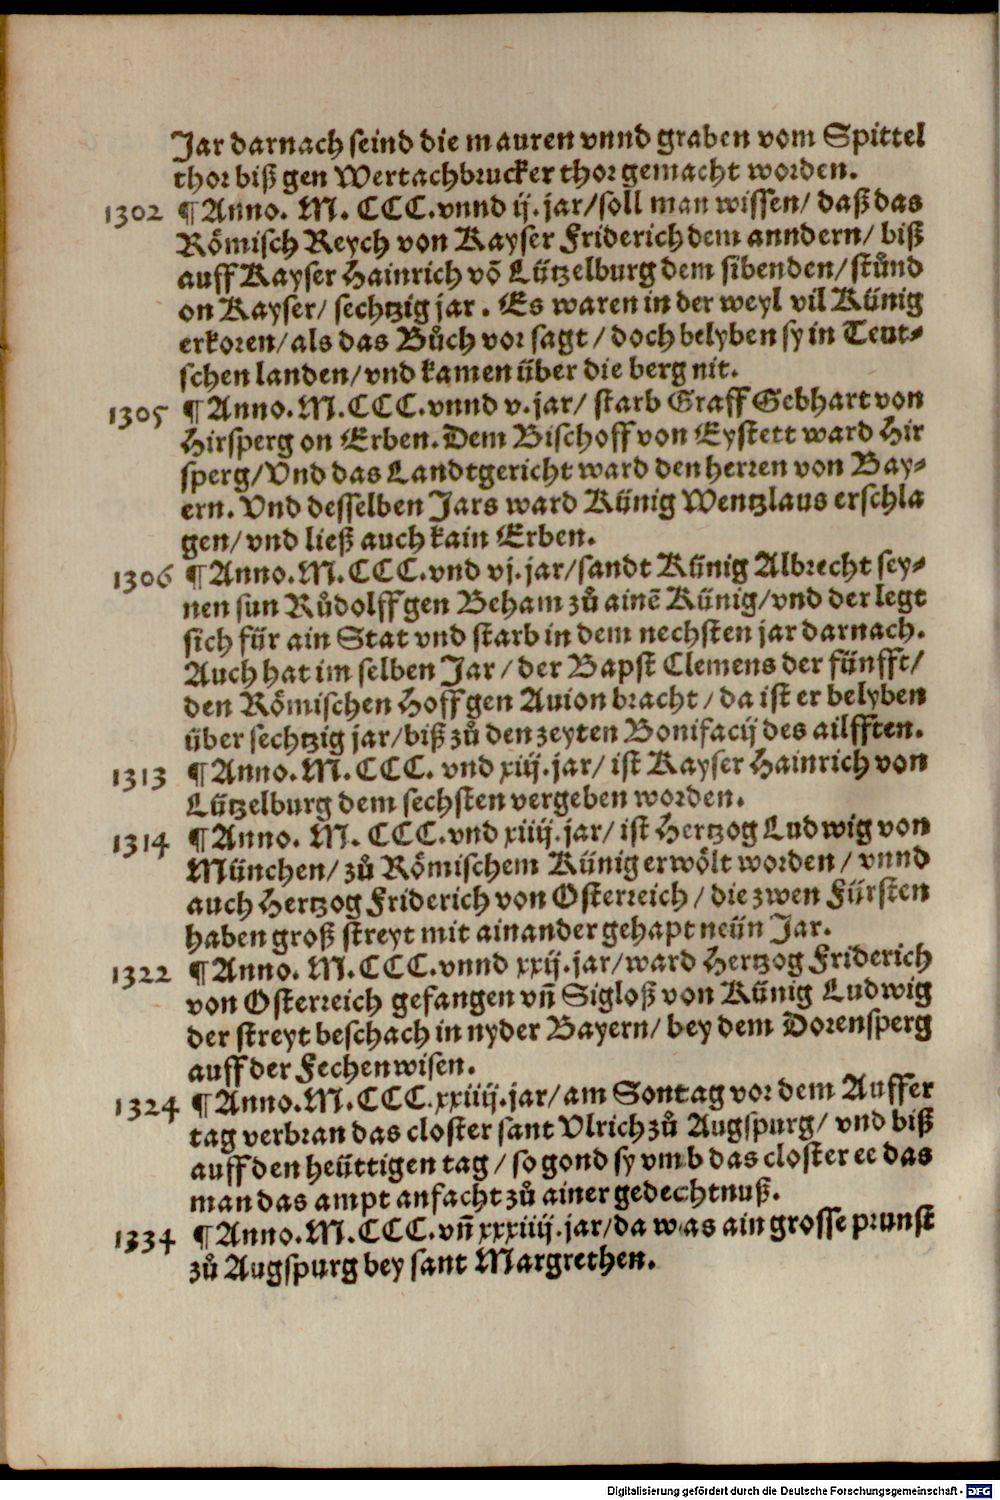 Jar darnach seind die mauren vnnd graben vom Spittel
thor biß gen Wertachbrucker thor gemacht worden.
1302 ¶ Anno. M. CCC. vnnd ij. jar/ soll man wissen/ daß das
Römisch Reych von Kayser Friderich dem anndern/ biß
auff Kayser Hainrich võ Lützelburg dem sibenden/ stůnd
on Kayser/ sechtzig jar. Es waren in der weyl vil Künig
erkoren/ als das Bůch vor sagt/ doch belyben sy in Teut⸗
schen landen/ vnd kamen über die berg nit.
1305 ¶ Anno. M. CCC. vnnd v. jar/ starb Graff Gebhart von
Hirsperg on Erben. Dem Bischoff von Eystett ward Hir
sperg/ Vnd das Landtgericht ward den herren von Bay⸗
ern. Vnd desselben Jars ward Künig Wentzlaus erschla
gen/ vnd ließ auch kain Erben.
1306 ¶ Anno. M. CCC. vnd vj. jar/ sandt Künig Albrecht sey⸗
nen sun Růdolff gen Beham zů ainē Künig/ vnd der legt
sich für ain Stat vnd starb in dem nechsten jar darnach.
Auch hat im selben Jar/ der Bapst Clemens der fünfft/
den Römischen Hoff gen Auion bracht/ da ist er belyben
über sechtzig jar/ biß zů den zeyten Bonifacij des ailfften.
1313 ¶ Anno. M. CCC. vnd xiij. jar/ ist Kayser Hainrich von
Lützelburg dem sechsten vergeben worden.
1314 ¶ Anno. M. CCC. vnd xiiij. jar/ ist Hertzog Ludwig von
München/ zů Römischem Künig erwölt worden/ vnnd
auch Hertzog Friderich von Osterreich/ die zwen Fürsten
haben groß streyt mit ainander gehapt neün Jar.
1322 ¶ Anno. M. CCC. vnnd xxij. jar/ ward Hertzog Friderich
von Osterreich gefangen vñ Sigloß von Künig Ludwig
der streyt beschach in nyder Bayern/ bey dem Dorensperg
auff der Fechenwisen.
1324 ¶ Anno. M. CCC. xxiiij. jar/ am Sontag vor dem Auffer
tag verbran das closter sant Vlrich zů Augspurg/ vnd biß
auff den heüttigen tag/ so gond sy vmb das closter ee das
man das ampt anfacht zů ainer gedechtnuß.
1334 ¶ Anno. M. CCC. vñ xxxiiij. jar/ da was ain grosse prunst
zů Augspurg bey sant Margrethen.
Digitalisierung gefördert durch die Deutsche Forschungsgemeinschaft - DFG